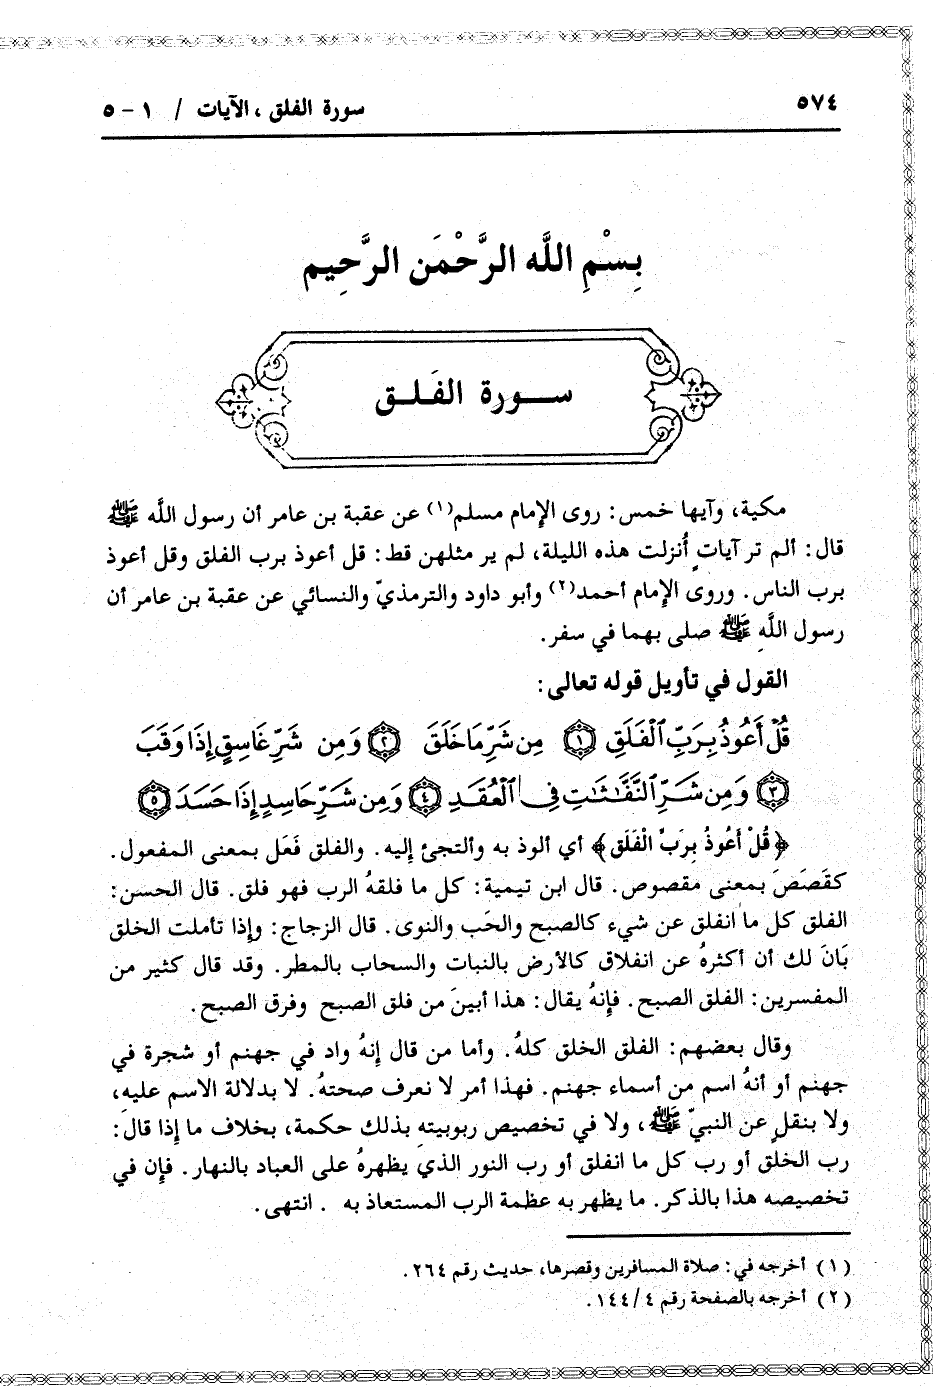 ٥٧٤
سورة الفلق ، الآيات / ١ - ٥
بِسْمِ اللَّه الرَّحْمَن الرَّحِيم
ســورة الفَـلـق
مكية، وآيها خمس: روى الإمام مسلم(١) عن عقبة بن عامر أن رسول اللَّه ﷺ
قال: ألم تر آياتٍ أُنزلت هذه الليلة، لم ير مثلهن قط: قل أعوذ برب الفلق وقل أعوذ
برب الناس. وروى الإمام أحمد(٢) وأبو داود والترمذيّ والنسائي عن عقبة بن عامر أن
رسول اللَّهِ ﷺ صلى بهما في سفر.
القول في تأويل قوله تعالى:
قُلْ أَعُوذُ بِرَبِّ ٱلْفَلَقِ ۝١ مِن شَرِّ مَا خَلَقَ ۝٢ وَمِن شَرِّ غَاسِقٍ إِذَا وَقَبَ
۝٣ وَمِن شَرِّ ٱلنَّفَّٰثَٰتِ فِى ٱلْعُقَدِ ۝٤ وَمِن شَرِّ حَاسِدٍ إِذَا حَسَدَ ۝٥
﴿قُلْ أَعُوذُ بِرَبِّ الْفَلَقِ﴾ أي ألوذ به وألتجئ إليه. والفلق فَعَل بمعنى المفعول.
كقَصَصَ بمعنى مقصوص. قال ابن تيمية: كل ما فلقهُ الرب فهو فلق. قال الحسن:
الفلق كل ما انفلق عن شيء كالصبح والحَب والنوى. قال الزجاج: وإذا تأملت الخلق
بَانَ لك أن أكثرهُ عن انفلاق كالأرض بالنبات والسحاب بالمطر. وقد قال كثير من
المفسرين: الفلق الصبح. فإنهُ يقال: هذا أبينَ من فلق الصبح وفرق الصبح.
وقال بعضهم: الفلق الخلق كلهُ. وأما من قال إنهُ واد في جهنم أو شجرة في
جهنم أو أنهُ اسم من أسماء جهنم. فهذا أمر لا نعرف صحتهُ. لا بدلالة الاسم عليه،
ولا بنقلٍ عن النبيّ ﷺ، ولا في تخصيص ربوبيتهِ بذلك حكمة، بخلاف ما إذا قالَ:
رب الخلق أو رب كل ما انفلق أو رب النور الذي يظهرهُ على العباد بالنهار. فإن في
تخصيصه هذا بالذكر. ما يظهر به عظمة الرب المستعاذ به . انتهى.
(١) أخرجه في: صلاة المسافرين وقصرها، حديث رقم ٢٦٤.
(٢) أخرجه بالصفحة رقم ١٤٤/٤.